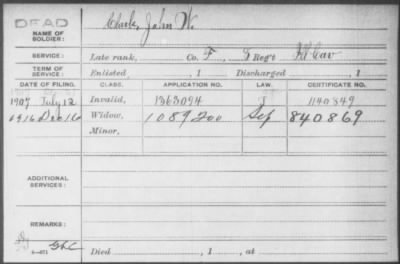 DEAD
NAME OF SOLDIER: Clark, John W.
SERVICE: Late rank, Co. F, 8 Reg't Ill Cav
TERM OF SERVICE: Enlisted , 1 Discharged , 1
DATE OF FILING. CLASS. APPLICATION NO. LAW. CERTIFICATE NO.
1907 July 12 Invalid, 1363094 1140849
1916 Dec 16 Widow, 1089200 Sep 840869
Minor,
ADDITIONAL SERVICES:
REMARKS:
Died , 1 , at